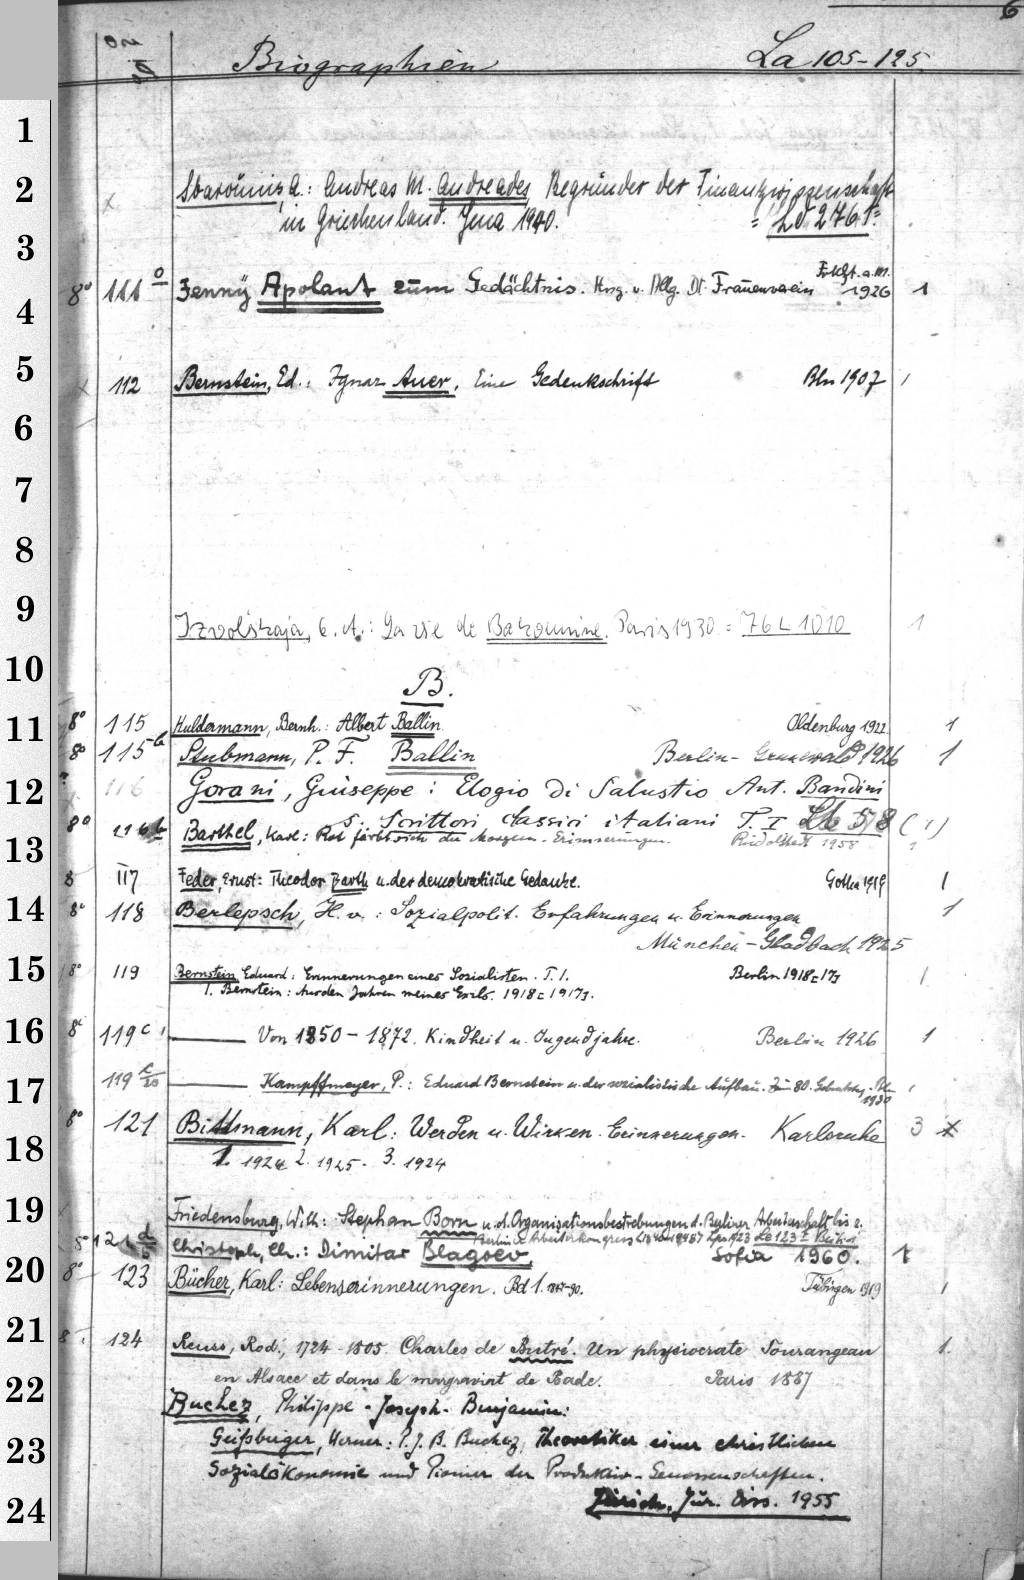 6
Biographien La 105-125
1
2 Starounis, A.: Andreas M. Andreades, Begründer der Finanzwissenschaft
in Griechenland. Jena 1940. = Ld 2761=
3
8° 111 o Jenny Apolant zum Gedächtnis. Hrsg. v. Allg. Dt. Frauenverein Frkft. a. M. 1926 1
4
5 112 Bernstein, Ed.: Ignaz Auer, Eine Gedenkschrift Bln 1907 1
6
7
8
9 Izvolskaja, E. A.: La vie de Bakounine. Paris 1930 = 76 L 1010 1
10 B.
11 8° 115 Huldermann, Bernh.: Albert Ballin Oldenburg 1922 1
8° 115 b Stubmann, P. F. Ballin Berlin-Grunewald 1926 1
12 116 Gorani, Giuseppe: Elogio di Salustio Ant. Bandini
s. Scrittori classici italiani T. I Lb 58 (1)
8° 116 b Barthel, Karl: Rot färbt sich der Morgen. Erinnerungen. Rudolstadt 1958
13
8 117 Feder, Ernst: Theodor Barth u. der demokratische Gedanke. Gotha 1919 1
14 8° 118 Berlepsch, H. v.: Sozialpolit. Erfahrungen u. Erinnerungen 1
München-Gladbach 1925
15 8° 119 Bernstein, Eduard: Erinnerungen eines Sozialisten. T. 1. Berlin 1918 1
1. Bernstein: Aus den Jahren meines Exils. 1918
16 8° 119 c — Von 1850-1872. Kindheit u. Jugendjahre. Berlin 1926 1
17 119 — Kampffmeyer, P.: Eduard Bernstein u. der sozialistische Aufbau. Zum 80. Geburtstag. Bln 1930
8° 121 Bittmann, Karl: Werden u. Wirken. Erinnerungen. Karlsruhe 3 x
18 1. 1924 2. 1925. 3. 1924
19 Friedensburg, Wilh: Stephan Born u. d. Organisationsbestrebungen d. Berliner Arbeiterschaft bis z.
Berliner Arbeiterkongress Lpz 1923
8° 121 Christoph, Ch.: Dimitar Blagoev, Sofia 1960. 1
20 8° 123 Bücher, Karl: Lebenserinnerungen. Bd 1. 1847-90. Tübingen 1919 1
21 8° 124 Reuss, Rod., 1724-1805. Charles de Butré. Un physiocrate Tourangeau 1.
22 en Alsace et dans le margraviat de Bade. Paris 1887
Buchez, Philippe-Joseph-Benjamin:
23 Geissburger, Werner: P. J. B. Buchez, Theoretiker einer christlichen
Sozialökonomie und Pionier der Produktiv-Genossenschaften.
24 Zürich, Jur. Diss. 1955